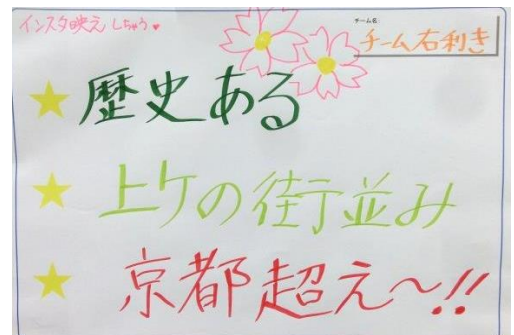 インスタ映えしちゃう♥
チーム名
チーム右利き
★歴史ある
★上ケの街並み
★京都超え～!!